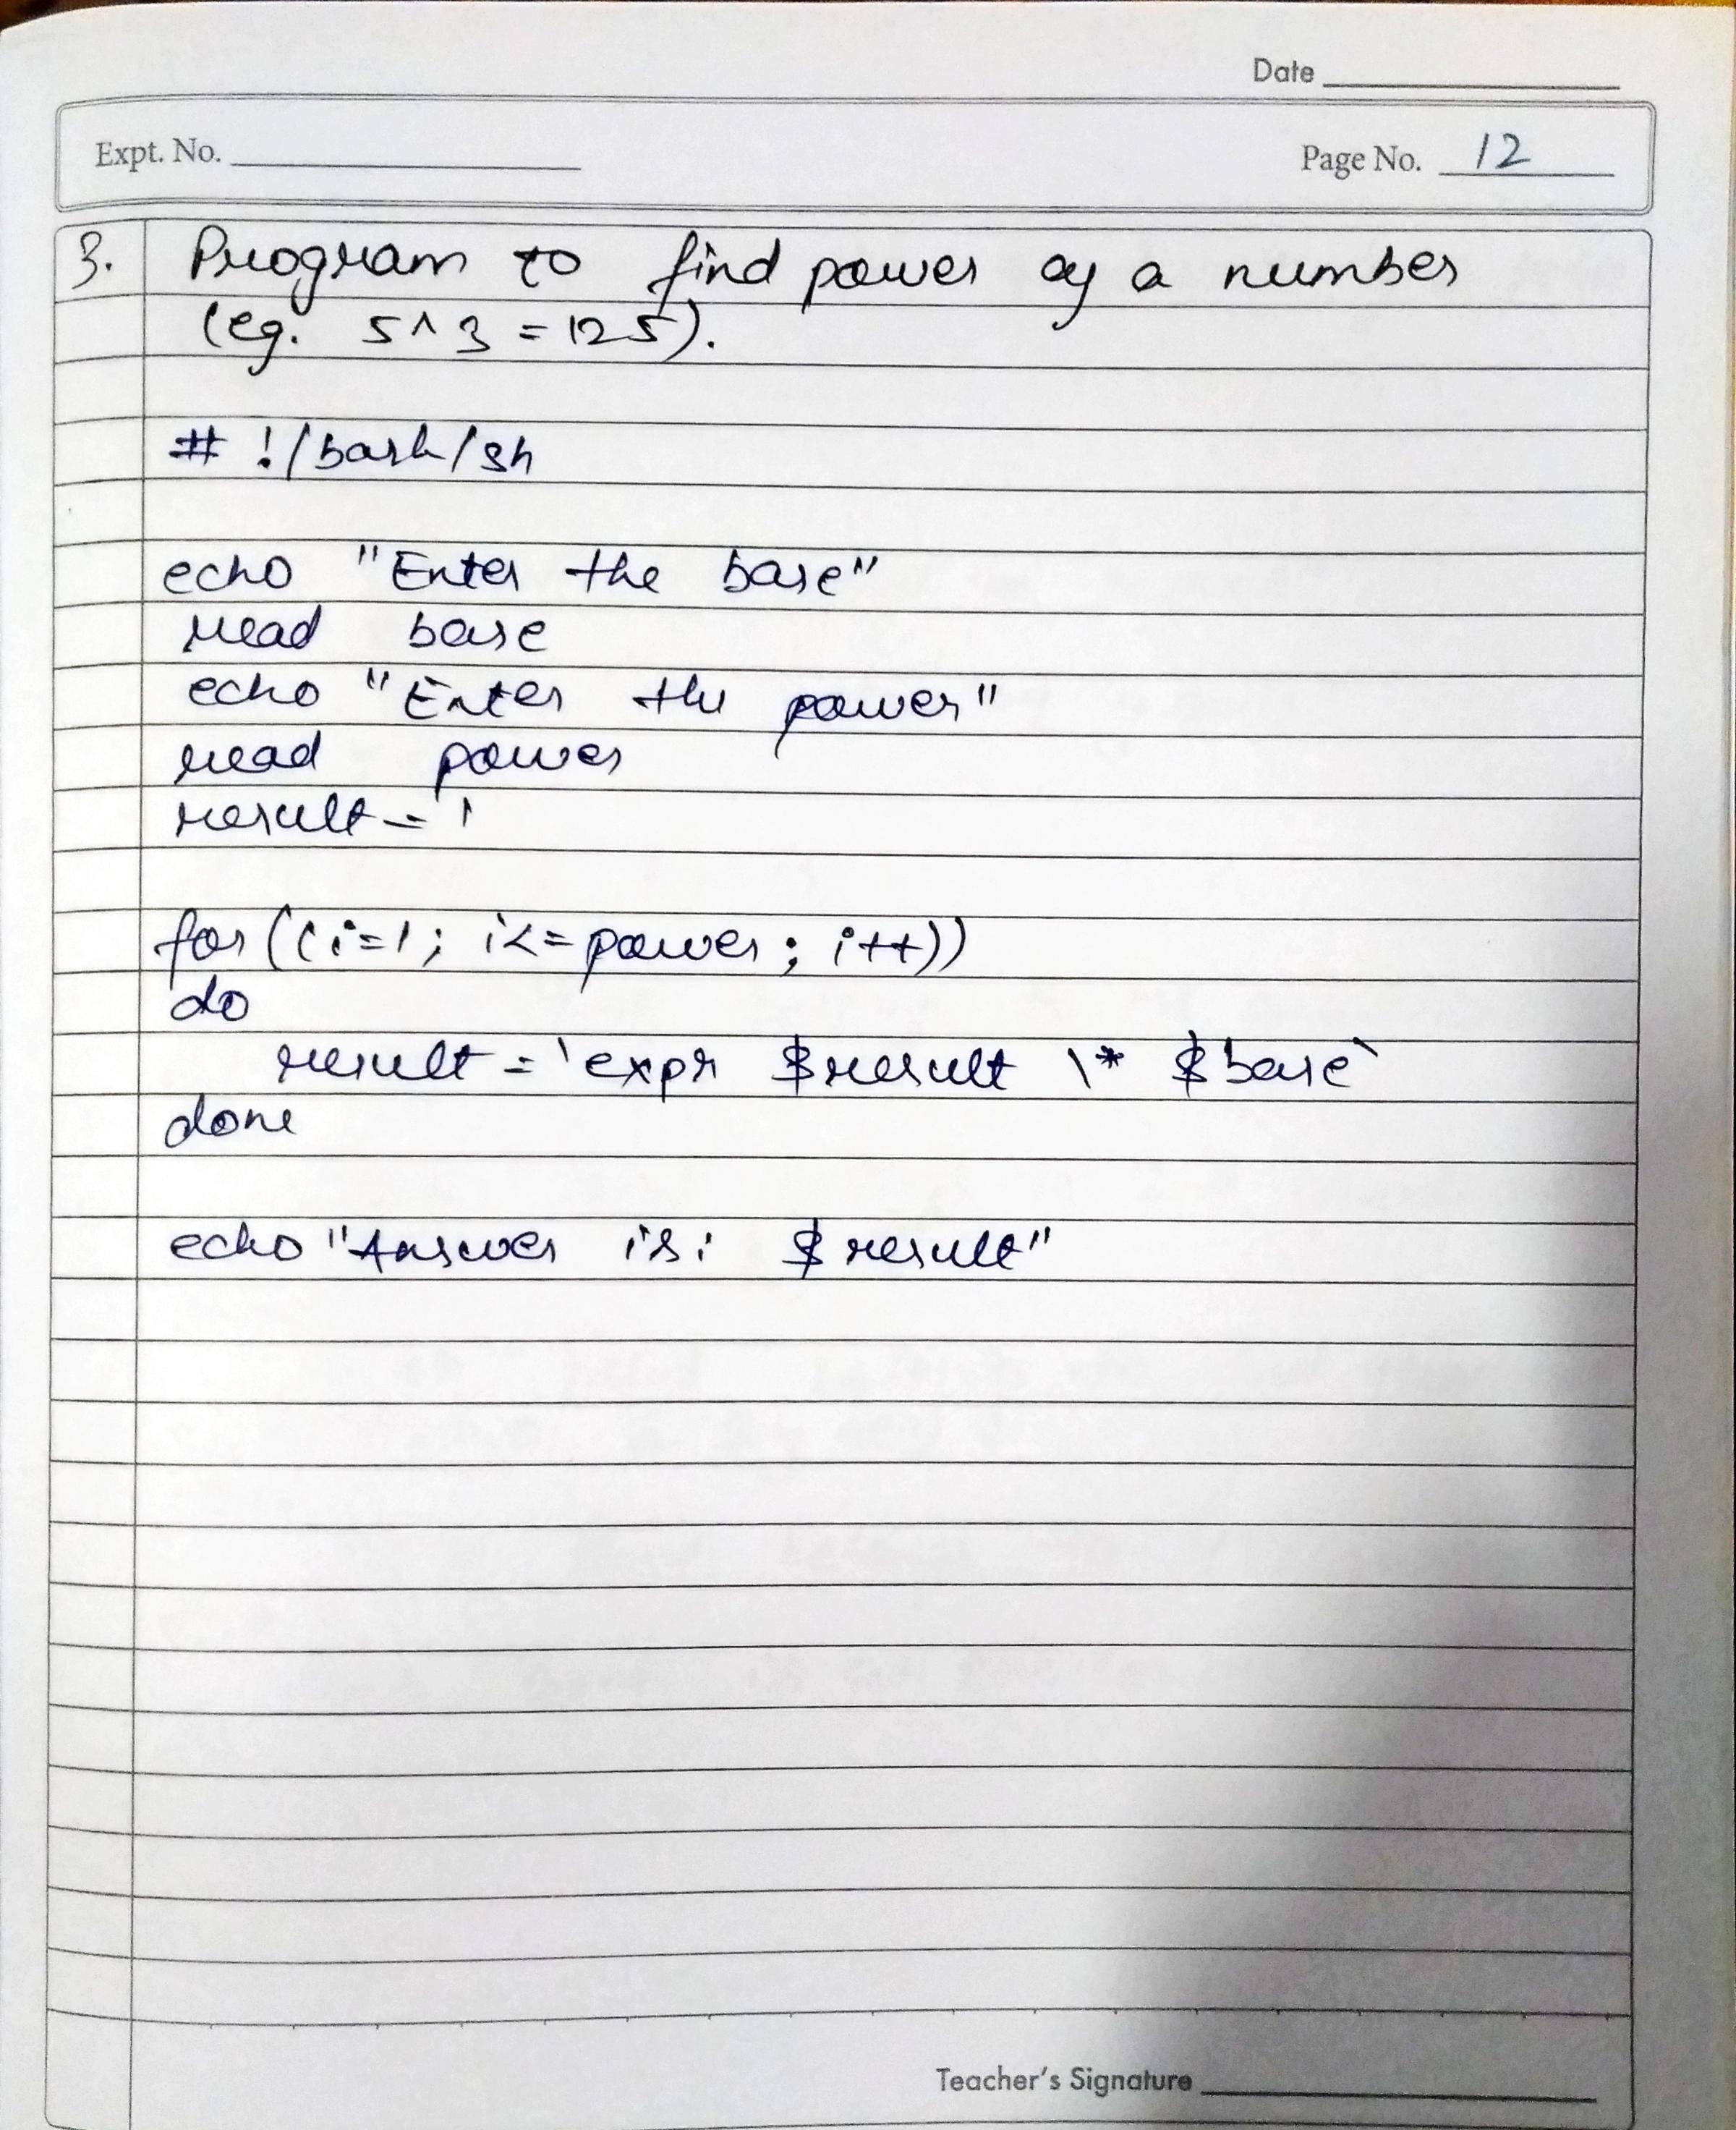 Date
Expt. No.
Page No. 12
3. Program to find power of a number
(eg. 5^3 = 125).
# !/bash/sh
echo "Enter the base"
read base
echo "Enter the power"
read power
result = 1
for ((i=1; i<=power; i++))
do
result = `expr $result \* $base`
done
echo "Answer is: $result"
Teacher's Signature